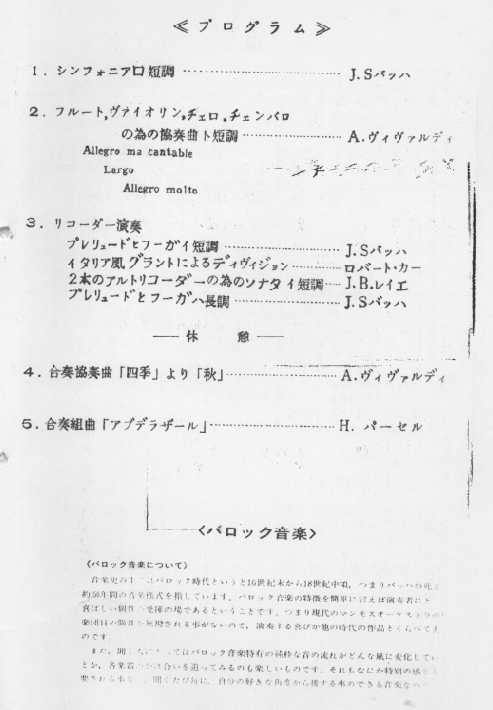 ≪プログラム≫
1. シンフォニアロ短調 ………………………… J.Sバッハ
2. フルート,ヴァイオリン,チェロ,チェンバロ
の為の協奏曲ト短調 ………………… A.ヴィヴァルディ
Allegro ma cantable
Largo
Allegro molto
3. リコーダー演奏
プレリュードとフーガイ短調 ………………… J.Sバッハ
イタリア風グラントによるディヴィジョン ……… ロバート・カー
2本のアルトリコーダーの為のソナタイ短調 …… J.B.レイエ
プレリュードとフーガハ長調 ………………… J.Sバッハ
― 休 憩 ―
4. 合奏協奏曲「四季」より「秋」………………… A.ヴィヴァルディ
5. 合奏組曲「アブデラザール」………………… H. パーセル
<バロック音楽>
(バロック音楽について)
音楽史の バロック時代というと16世紀末から18世紀中頃,つまりバッハの死
約150年間の音楽様式を指しています。バロック音楽の特徴を簡単に言えば演奏者に
喜ばしい個性 の場であるということです。つまり現代のマンモスオーケストラの
楽団員の個性が無視される事がないので,演奏する喜びが他の時代の作品とくらべて
のです
また, バロック音楽特有の純粋な音の流れがどんな風に変化してい
とか,各楽器 合いを追ってみるのも楽しいものです。それもなにか特別の
自分の好きな角度から接する事のできる音楽なの